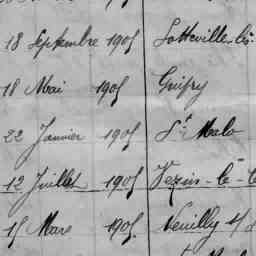 18 Septembre 1905 Sotteville-lès
18 Mai 1905
22 Janvier 1905 St Malo
12 Juillet 1905 Vezin-le-
15 Mars 1905 Neuilly s/